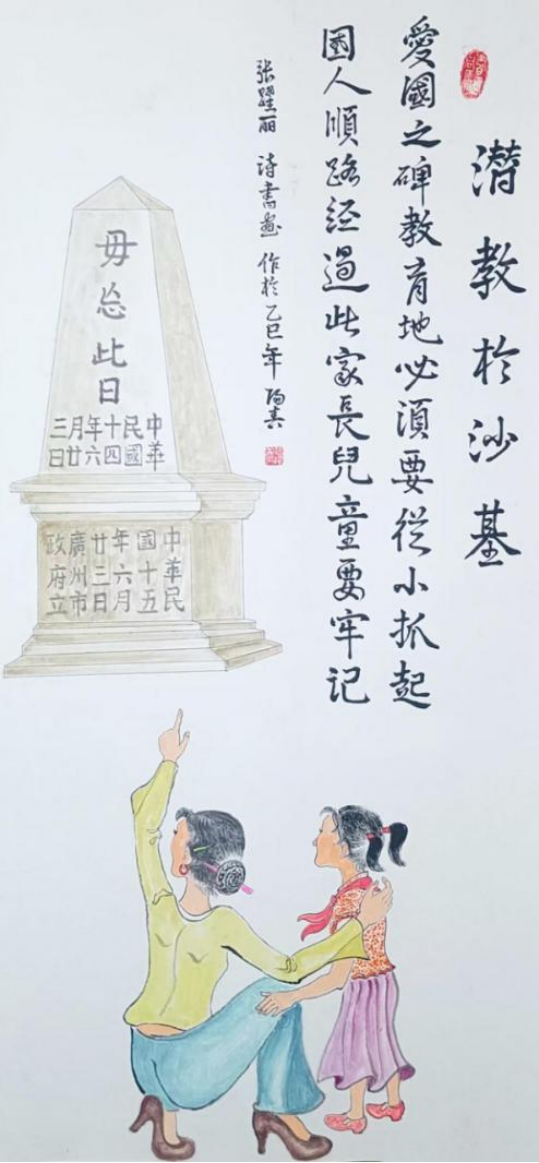 潛教於沙基
愛國之碑教育地必須要從小抓起
国人順路经過此家長兒童要牢记
张丽 诗書畫 作於乙巳年
毋忘此日
中華
民國
十四
年六
月廿
三日
中華民
國十五
年六月
廿三日
廣州市
政府立